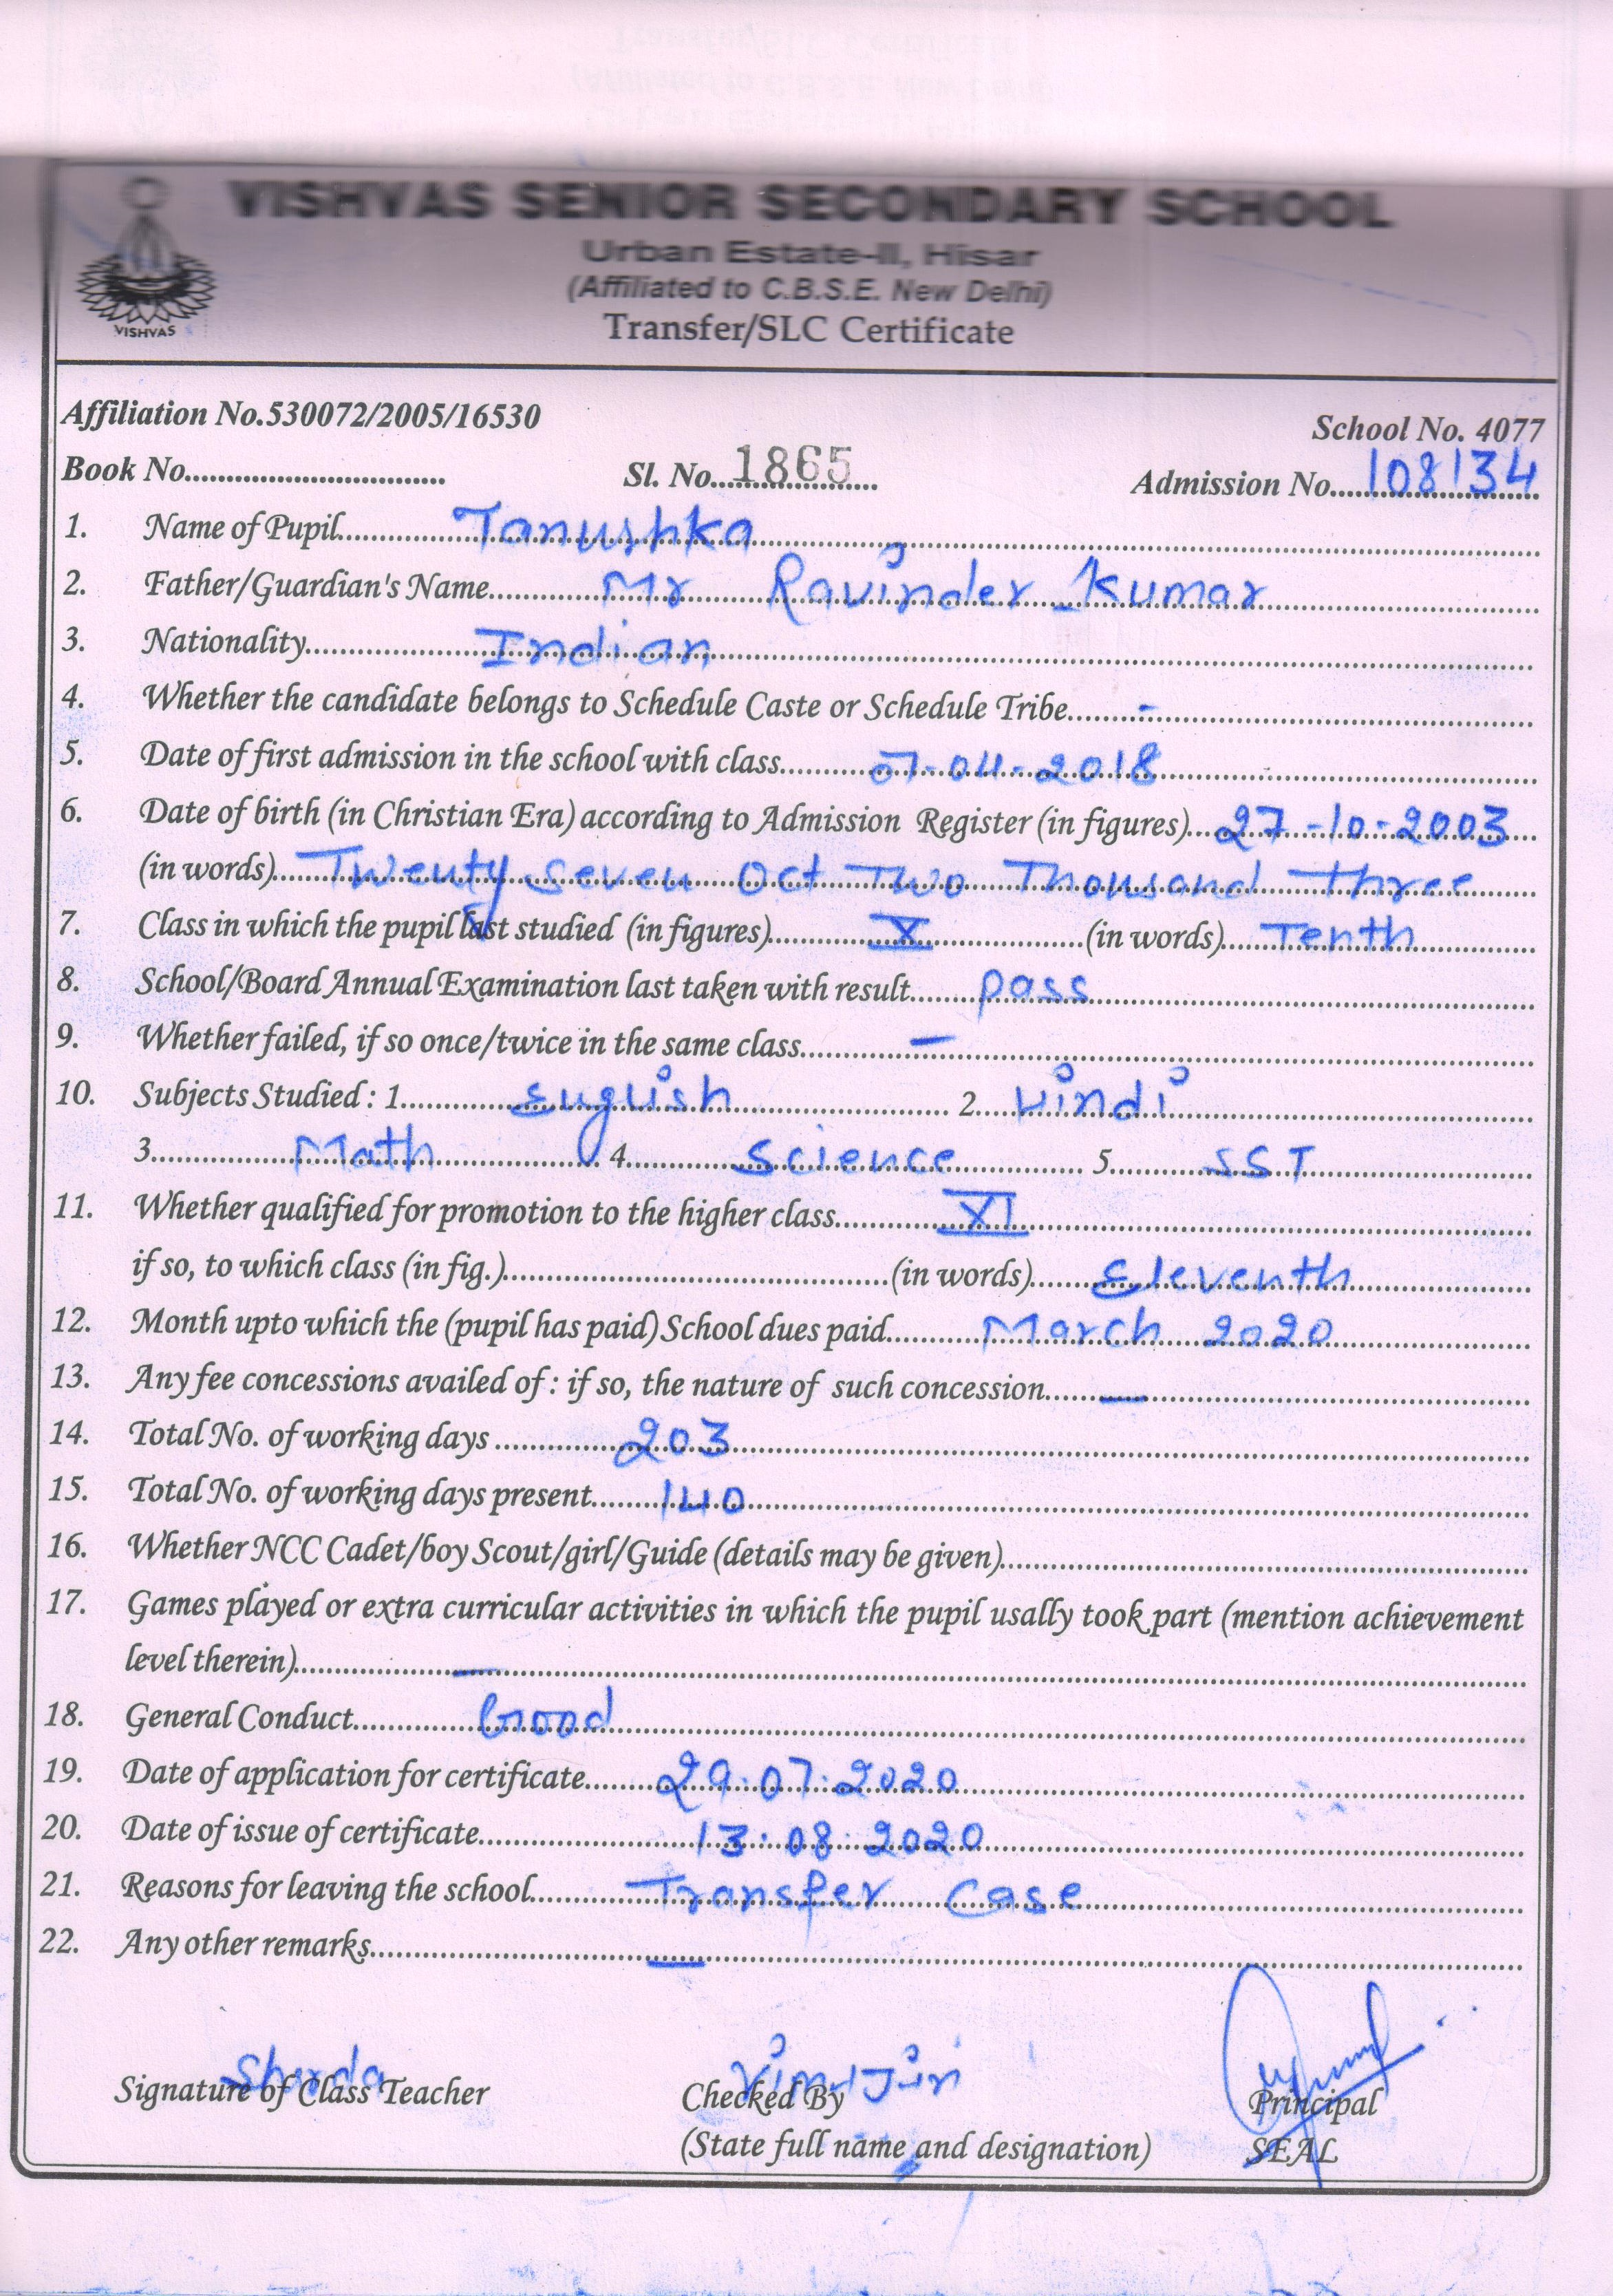 VISHVAS SENIOR SECONDARY SCHOOL
Urban Estate-II, Hisar
(Affiliated to C.B.S.E. New Delhi)
VISHVAS
Transfer/SLC Certificate
Affiliation No.530072/2005/16530 School No. 4077
Book No............ Sl. No. 1865 Admission No. 108134
1. Name of Pupil Tanushka
2. Father/Guardian's Name Mr Ravinder Kumar
3. Nationality Indian
4. Whether the candidate belongs to Schedule Caste or Schedule Tribe -
5. Date of first admission in the school with class 07-04-2018
6. Date of birth (in Christian Era) according to Admission Register (in figures) 27-10-2003
(in words) Twenty Seven Oct Two Thousand Three
7. Class in which the pupil last studied (in figures) X (in words) Tenth
8. School/Board Annual Examination last taken with result pass
9. Whether failed, if so once/twice in the same class —
10. Subjects Studied : 1. English 2. Hindi
3. Math 4. Science 5. SST
11. Whether qualified for promotion to the higher class XI
if so, to which class (in fig.)............ (in words) Eleventh
12. Month upto which the (pupil has paid) School dues paid March 2020
13. Any fee concessions availed of : if so, the nature of such concession —
14. Total No. of working days 203
15. Total No. of working days present 140
16. Whether NCC Cadet/boy Scout/girl/Guide (details may be given)............
17. Games played or extra curricular activities in which the pupil usally took part (mention achievement
level therein) —
18. General Conduct Good
19. Date of application for certificate 29.07.2020
20. Date of issue of certificate 13.08.2020
21. Reasons for leaving the school Transfer Case
22. Any other remarks —
Signature of Class Teacher Checked By Principal
(State full name and designation) SEAL